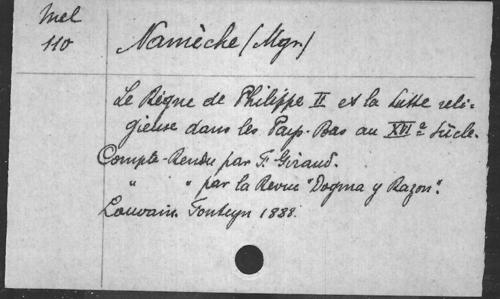 Mel
110
Namèche (Mgr)
Le Règne de Philippe II et la Lutte reli-
gieuse dans les Pays-Bas au XVIe Siècle.
Compte-Rendu par F. Giraud.
" " par la Revue "Dogma y Razon".
Louvain. Fonteyn 1888.